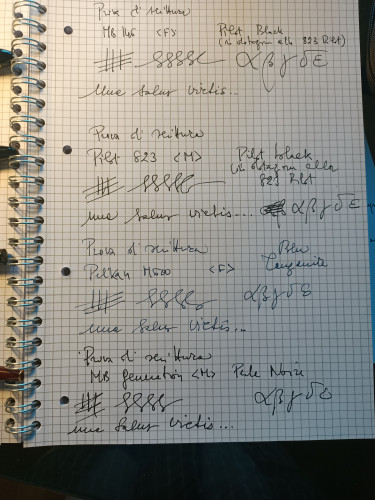 Prova di scrittura
MB 146 <F> Pilot Black
(in dotazione alla 823 Pilot)
α β γ δ ε
una salus victis...
Prova di scrittura
Pilot 823 <M> Pilot black
(in dotazione alla
823 Pilot
una salus victis... α β γ δ ε
Prova di scrittura
Pelikan M600 <F> Blu
Tanzanite
α β γ δ ε
una salus victis...
Prova di scrittura
MB Generation <M> Perle Noire
α β γ δ ε
una salus victis...